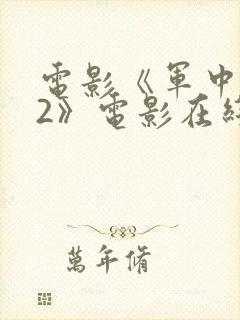 電影《軍中
2》電影在
萬年脩